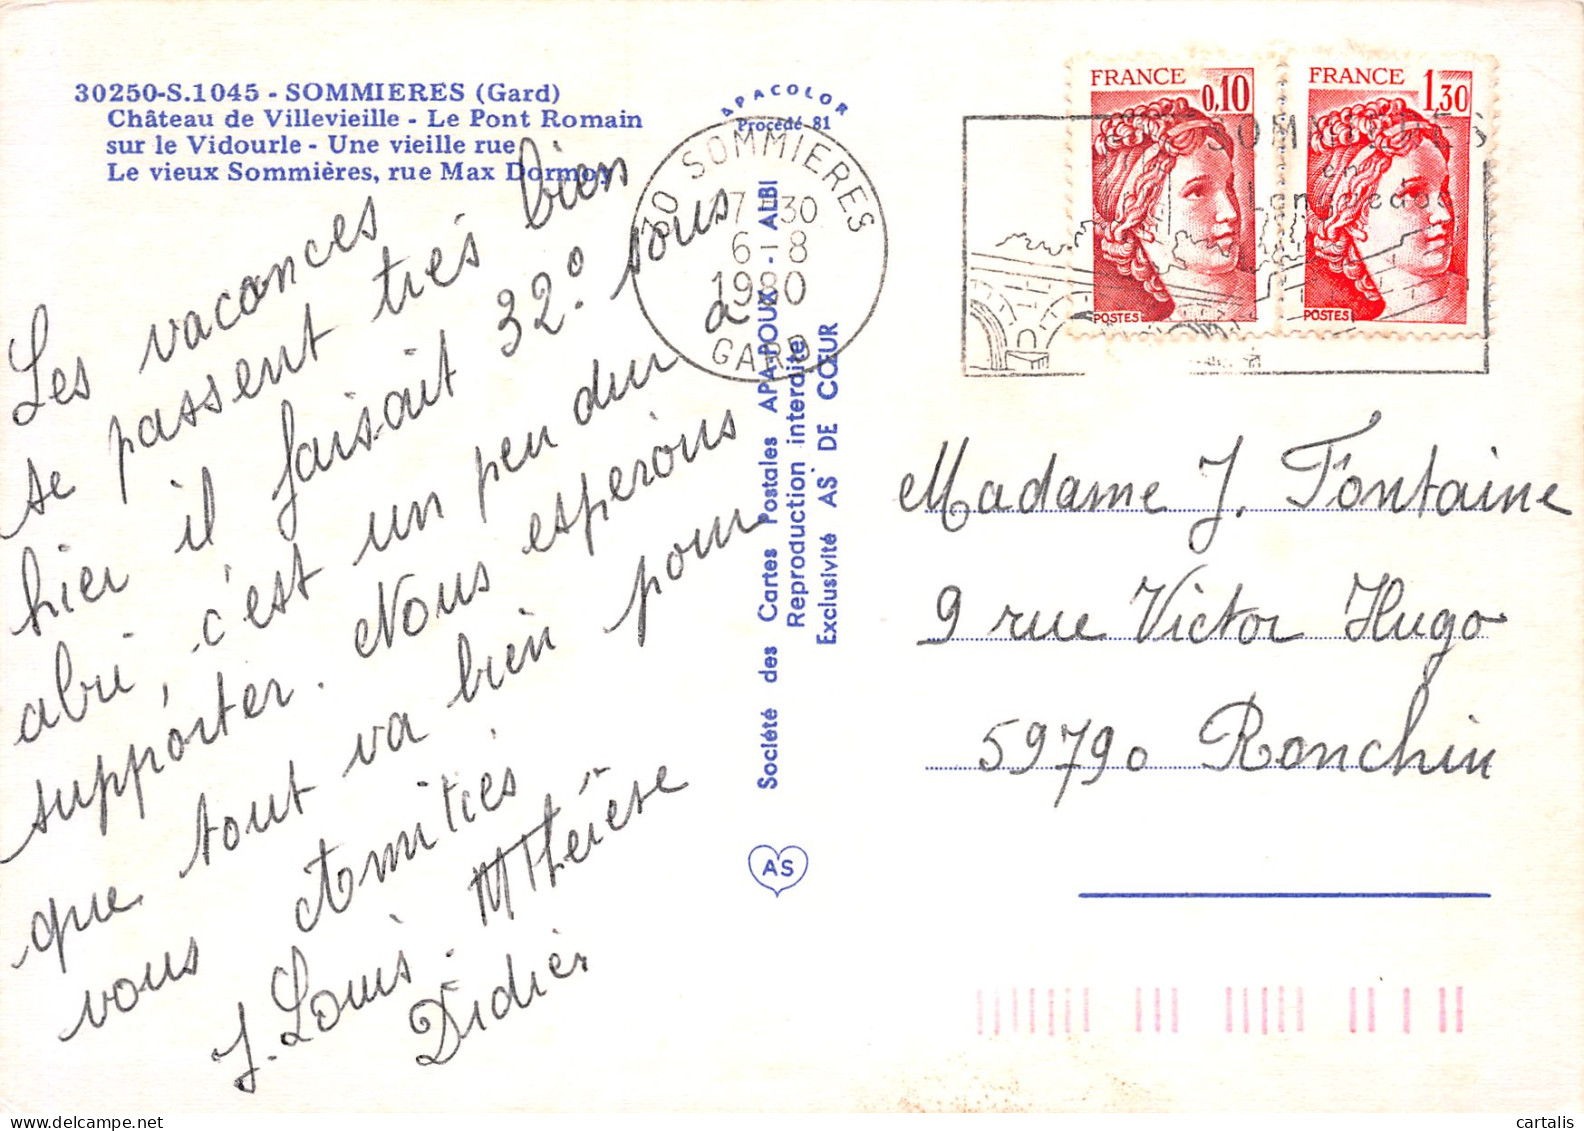 30250-S.1045 - SOMMIERES (Gard)
Château de Villevieille - Le Pont Romain
sur le Vidourle - Une vieille rue
Le vieux Sommières, rue Max Dormoy
APACOLOR
Procédé 81
Les vacances
se passent très bien
hier il faisait 32° sous
abri, c'est un peu dur a
supporter. Nous esperons
que tout va bien pour
vous Amitiés.
J. Louis. MThérèse
Didier
Société des Cartes Postales APA-POUX - ALBI
Reproduction interdite
Exclusivité AS DE CŒUR
AS
30 SOMMIERES
17-30
6-8
1980
GARD
SOMMIERES
en
Languedoc
FRANCE
0,10
POSTES
FRANCE
1,30
POSTES
Madame J. Fontaine
9 rue Victor Hugo
59790 Ronchin
cartalis
www.delcampe.net